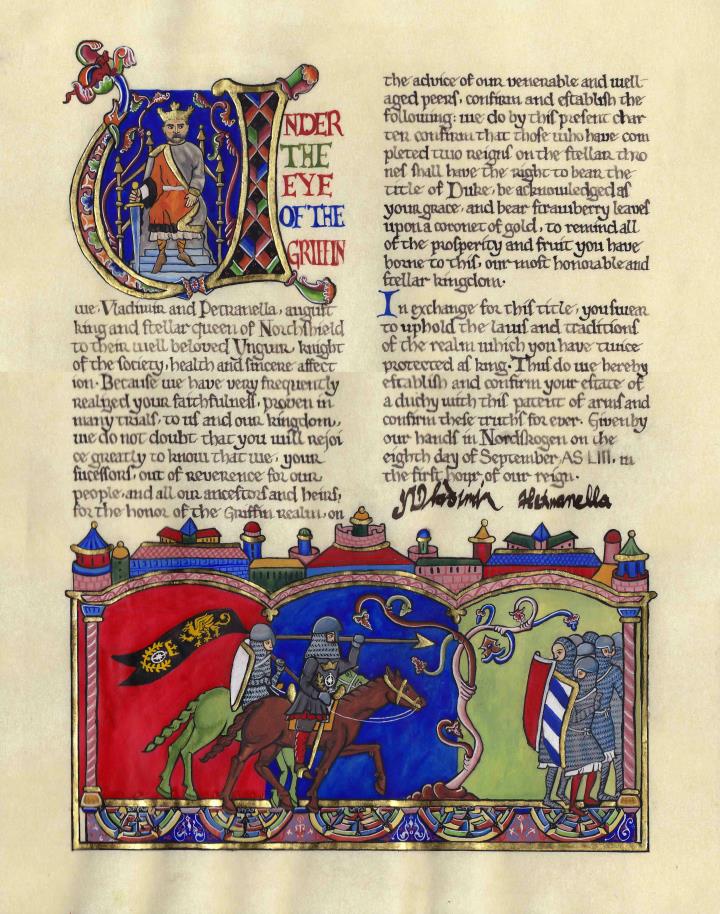 UNDER
THE
EYE
OF THE
GRIFFIN
we, Vladimir and Petranella, auguſt
king and ſtellar queen of Northſhield
to their well beloved Vnguur, knight
of the ſociety, health and ſincere affect
ion. Becauſe we have very frequently
realized your faithfulneſs, proven in
many trials, to us and our kingdom,
we do not doubt that you will rejoi
ce greatly to know that we, your
ſucceſſors, out of reverence for our
people, and all our anceſtors and heirs,
for the honor of the Griffin realm, on
the advice of our venerable and well-
aged peers, confirm and eſtabliſh the
following: we do by this preſent char
ter confirm that thoſe who have com
pleted two reigns on the ſtellar thro
nes ſhall have the right to bear the
title of Duke, be acknowledged as
your grace, and bear ſtrawberry leaves
upon a coronet of gold, to remind all
of the proſperity and fruit you have
borne to this, our moſt honorable and
ſtellar kingdom.
In exchange for this title, you ſwear
to uphold the laws and traditions
of the realm which you have twice
protected as king. Thus do we hereby
eſtabliſh and confirm your eſtate of
a duchy with this patent of arms and
confirm theſe truths for ever. Given by
our hands in Nordſkogen on the
eighth day of September AS LIII, in
the firſt hour, of our reign.
Vladimir Petranella